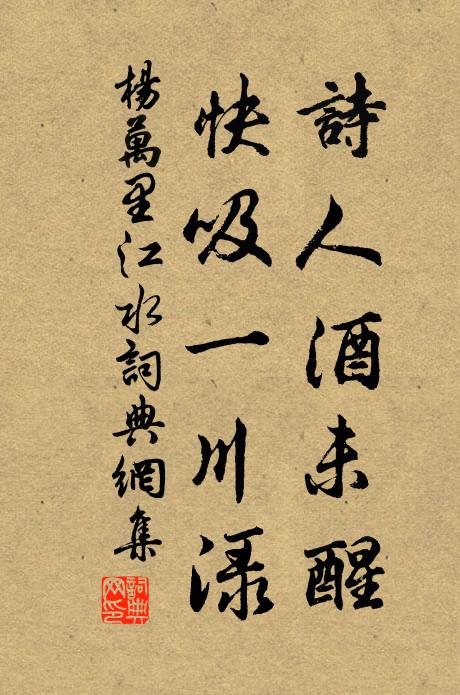 詩人酒未醒
快吸一川淥
楊萬里江水詞典網集
詞典网印